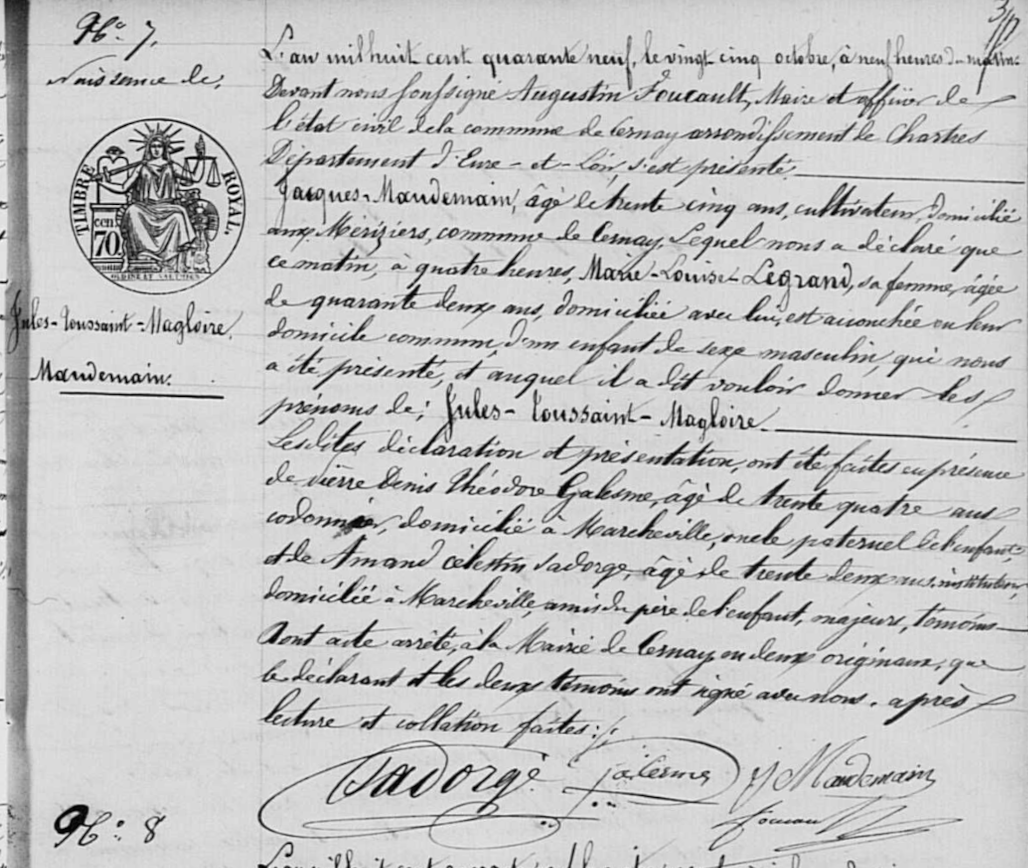 No. 7.
Naissance de,
TIMBRE ROYAL.
cen
70
Jules-Toussaint-Magloire.
Maudemain.
L'an mil huit cent quarante neuf, le vingt cinq octobre, à neuf heures du matin
Devant nous soussigné Augustin Foucault, Maire et officier de
l'état civil de la commune de Cernay arrondissement de Chartres
Département d'Eure-et-Loir, s'est présenté
Jacques-Maudemain, âgé de trente cinq ans, cultivateur, domicilié
aux Méziziers, commune de Cernay, Lequel nous a déclaré que
ce matin, à quatre heures, Marie-Louise-Legrand, sa femme, âgée
de quarante deux ans, domiciliée avec lui, est accouchée en leur
domicile commun, d'un enfant de sexe masculin, qui nous
a été présenté, et auquel il a dit vouloir donner les
prénoms de; Jules-Toussaint-Magloire.
Lesdites déclaration et présentation, ont été faites en présence
de Pierre Denis Théodore Galerme, âgé de trente quatre ans
cordonnier, domicilié à Marcheville, oncle paternel de l'enfant,
et de Amand Célestin Sadorge, âgé de trente deux ans, instituteur,
domicilié à Marcheville, amis du père de l'enfant, majeurs, témoins
Dont acte arrêté, à la Mairie de Cernay en deux originaux, que
le déclarant et les deux témoins ont signé avec nous, après
lecture et collation faites:
Sadorge Galerme J Maudemain
No. 8